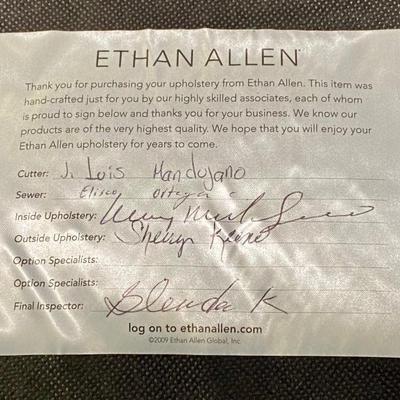 ETHAN ALLEN®
Thank you for purchasing your upholstery from Ethan Allen. This item was
hand-crafted just for you by our highly skilled associates, each of whom
is proud to sign below and thanks you for your business. We know our
products are of the very highest quality. We hope that you will enjoy your
Ethan Allen upholstery for years to come.
Cutter: J. Luis Mandujano
Sewer: Eliseo Ortega
Inside Upholstery:
Outside Upholstery: Sherryn
Option Specialists:
Option Specialists:
Final Inspector: Glenda K
log on to ethanallen.com
©2009 Ethan Allen Global, Inc.